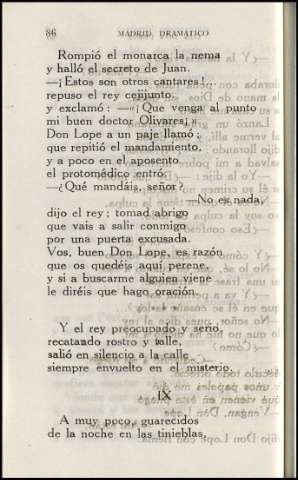 86 MADRID DRAMÁTICO
Rompió el monarca la nema
y halló el secreto de Juan.
—¡Estos son otros cantares!,
repuso el rey cejijunto,
y exclamó: —«¡Que venga al punto
mi buen doctor Olivares¡»
Don Lope a un paje llamó;
que repitió el mandamiento,
y a poco en el aposento
el protomédico entró.
—¿Qué mandáis, señor?
—No es nada,
dijo el rey; tomad abrigo
que vais a salir conmigo
por una puerta excusada.
Vos, buen Don Lope, es razón
que os quedéis aquí perene,
y si a buscarme alguien viene
le diréis que hago oración.
Y el rey preocupado y serio,
recatando rostro y talle,
salió en silencio a la calle
siempre envuelto en el misterio.
IX
A muy poco, guarecidos
de la noche en las tinieblas,